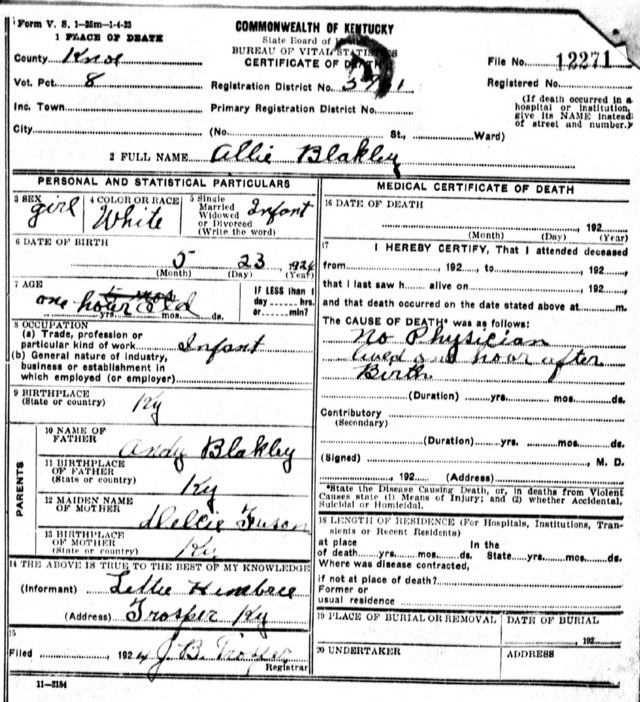 Form V. S. 1-25m-1-4-23
COMMONWEALTH OF KENTUCKY
State Board of
BUREAU OF VITAL STATISTICS
CERTIFICATE OF DEATH
1 PLACE OF DEATH
County Knox
Vot. Pct 8
Inc. Town
City
Registration District No.
Primary Registration District No.
(No. St., Ward)
File No. 12271
Registered No.
(If death occurred in a
hospital or institution,
give its NAME instead
of street and number.)
2 FULL NAME Allie Blakley
PERSONAL AND STATISTICAL PARTICULARS
3 SEX
girl
4 COLOR OR RACE
White
5 Single
Married
Widowed
or Divorced
(Write the word)
Infant
6 DATE OF BIRTH
5 23 1924
(Month) (Day) (Year)
7 AGE
one hour old
yrs. mos. ds.
IF LESS than 1
day hrs.
or min?
8 OCCUPATION
(a) Trade, profession or
particular kind of work Infant
(b) General nature of industry,
business or establishment in
which employed (or employer)
9 BIRTHPLACE
(State or country)
Ky
PARENTS
10 NAME OF
FATHER
Andy Blakley
11 BIRTHPLACE
OF FATHER
(State or country)
Ky
12 MAIDEN NAME
OF MOTHER
Fuson
13 BIRTHPLACE
OF MOTHER
(State or country)
Ky
14 THE ABOVE IS TRUE TO THE BEST OF MY KNOWLEDGE
(Informant) Lettie
(Address) Trosper Ky
15
Filed , 1924 J. B. Trosper
Registrar
11—3184
MEDICAL CERTIFICATE OF DEATH
16 DATE OF DEATH
192
(Month) (Day) (Year)
17
I HEREBY CERTIFY, That I attended deceased
from , 192 , to , 192 ,
that I last saw h alive on , 192 ,
and that death occurred on the date stated above at m.
The CAUSE OF DEATH* was as follows:
No Physician
lived one hour after
Birth
(Duration) yrs. mos. ds.
Contributory
(Secondary)
(Duration) yrs. mos. ds.
(Signed) , M. D.
, 192 (Address)
*State the Disease Causing Death, or, in deaths from Violent
Causes state (1) Means of Injury; and (2) whether Accidental,
Suicidal or Homicidal.
18 LENGTH OF RESIDENCE (For Hospitals, Institutions, Tran-
sients or Recent Residents)
at place In the
of death yrs. mos. ds. State yrs. mos. ds.
Where was disease contracted,
if not at place of death?
Former or
usual residence
19 PLACE OF BURIAL OR REMOVAL
DATE OF BURIAL
, 192
20 UNDERTAKER
ADDRESS